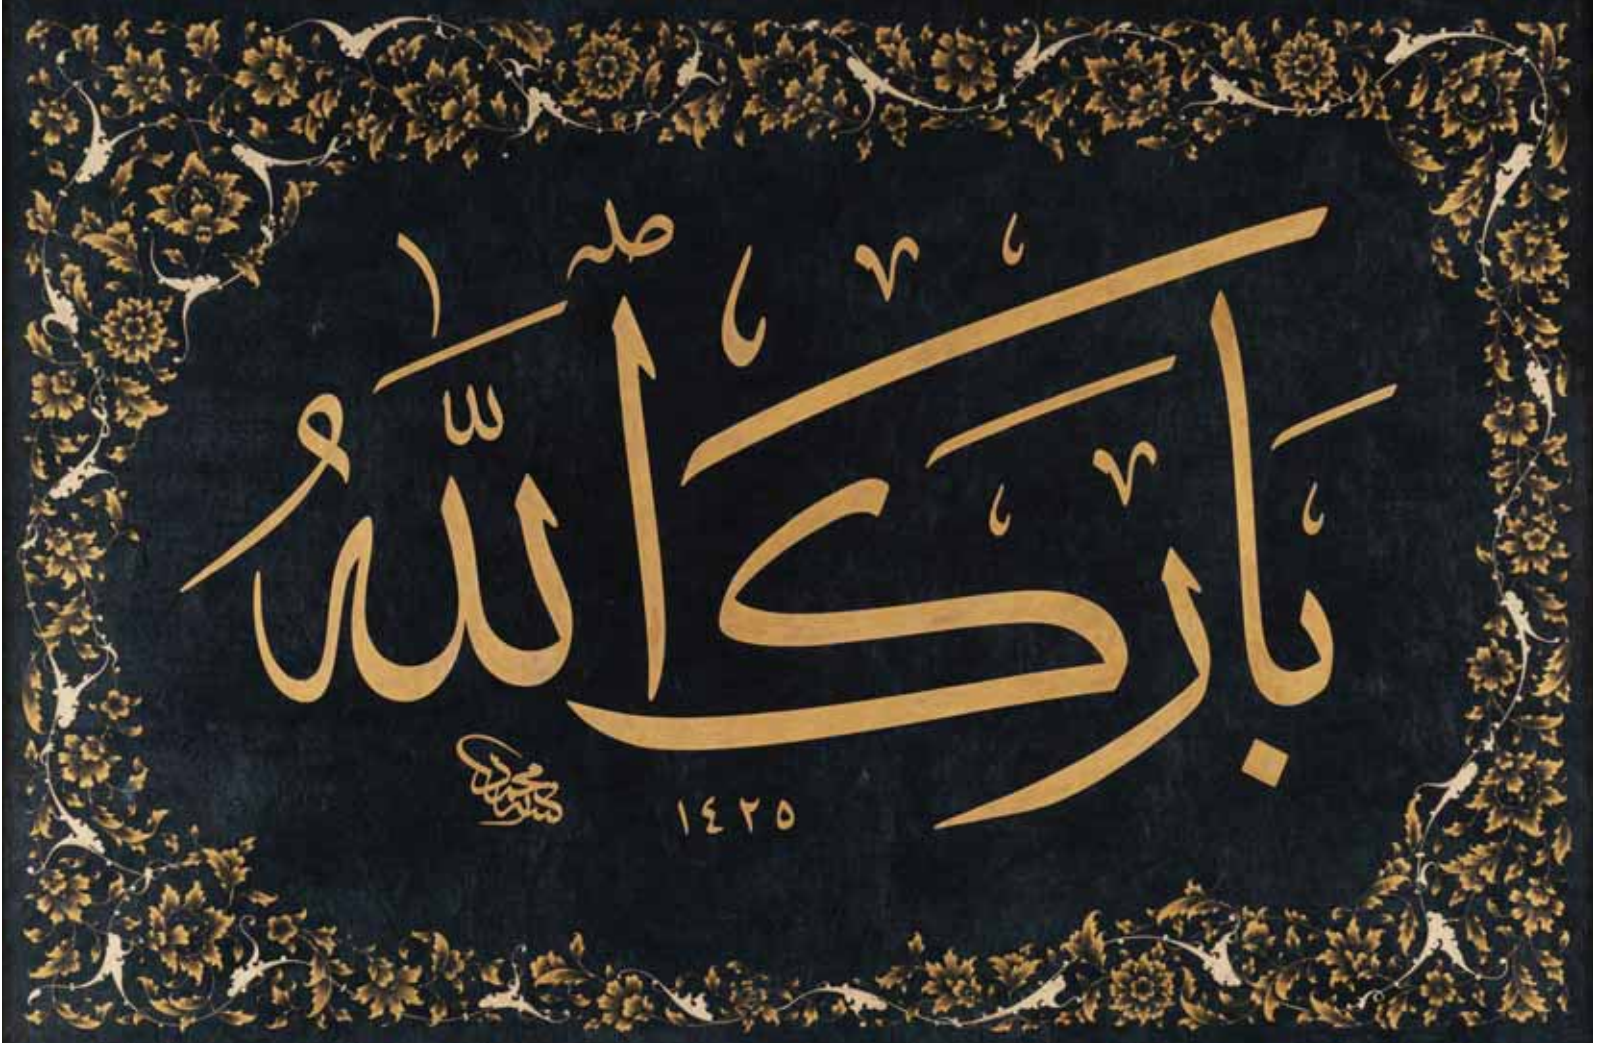 بَارَكَ اللّٰهُ
١٤٢٥